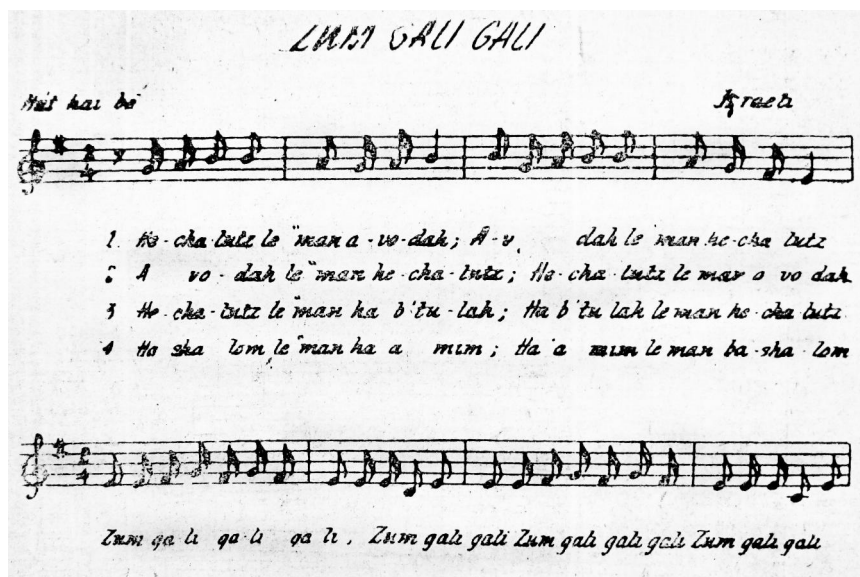 ZUM GALI GALI
Hát hai bè
Israeli
2/4
1. He-cha-lutz le "man a-vo-dah; A-v dah le man he-cha lutz
2 A vo-dah le "man he-cha-lutz; He-cha lutz le man a vo dah
3 He-cha-lutz le "man ha b'tu-lah; Ha b'tu lah le man he-cha lutz
4 Ha sha lom le "man ha a mim; Ha 'a mim le man ba-sha-lom
2/4
Zum ga li ga-li ga li, Zum gali gali Zum gali gali gali Zum gali gali